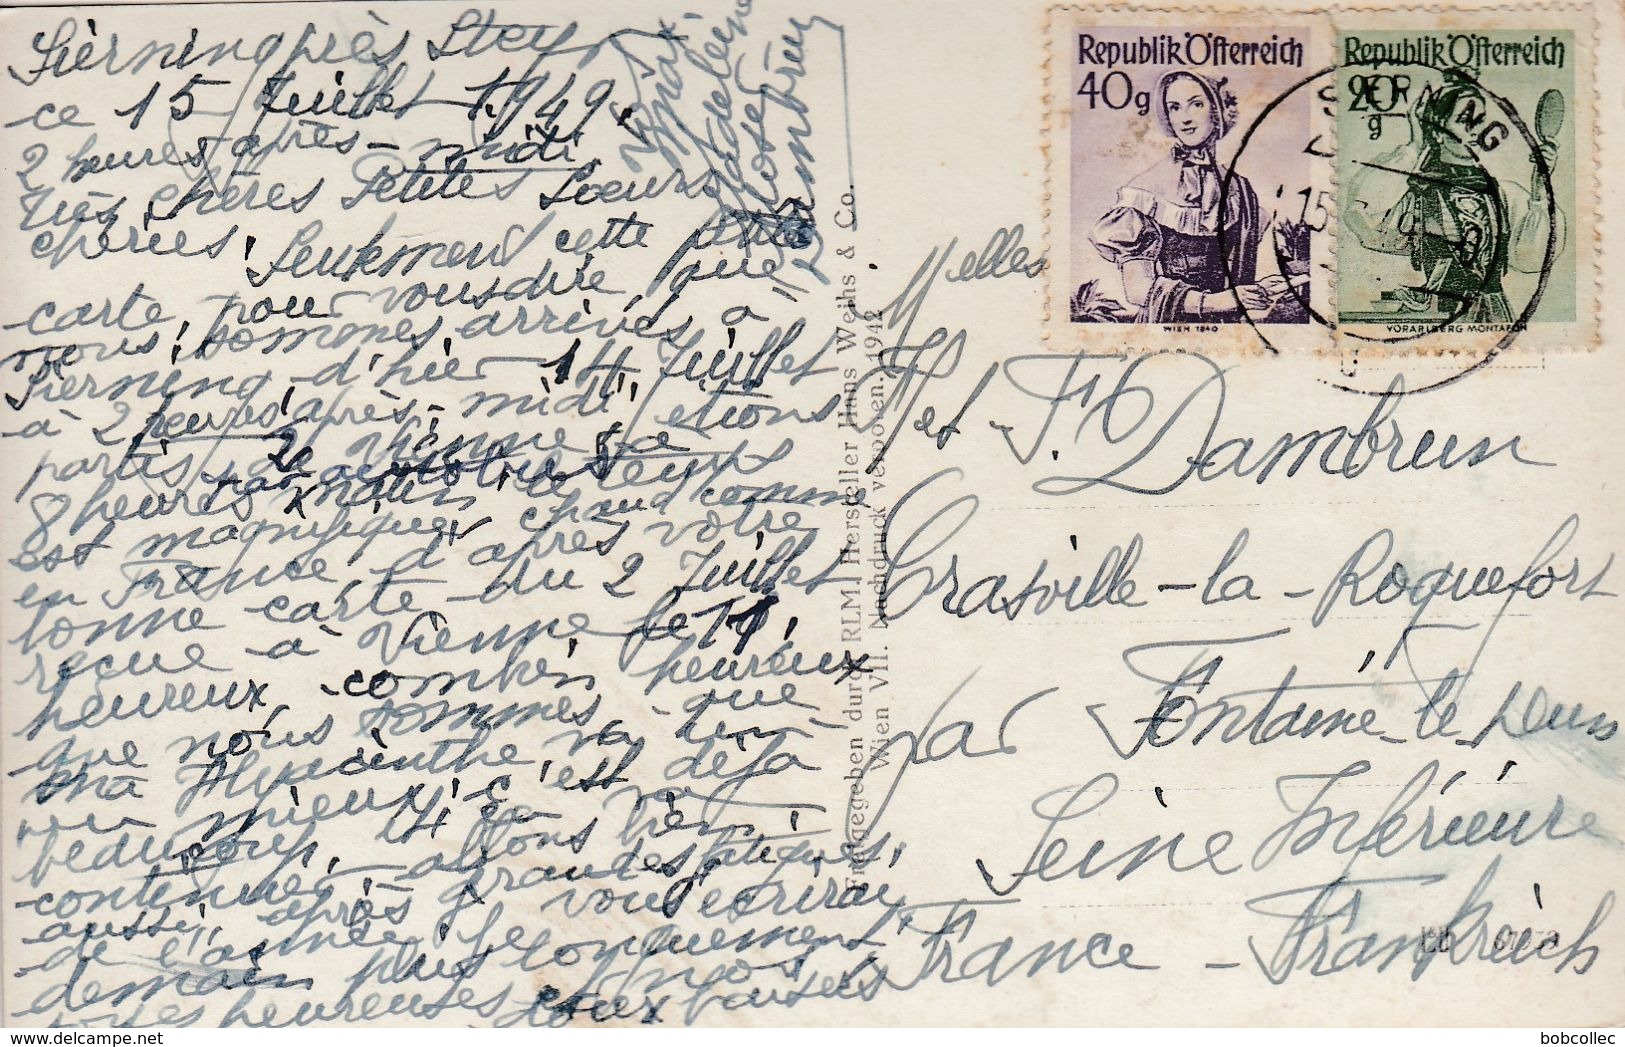 Sierning près Steyr
ce 15 Juillet 1949.
2 heures après-midi
Très chères Petites Soeurs
chéries, Seulement cette petite
carte, pour vous dire que
nous sommes arrivés à
Sierning d'hier 14 Juillet
à 2 heures après-midi, étions
partis de Vienne à
8 heures matin le temps
est magnifique, chaud comme
en France d'après votre
bonne carte du 2 Juillet
reçue à Vienne le 11,
heureux, combien heureux
que nous sommes, que
ma Hyacinthe va un
peu mieux, c'est déjà
beaucoup, si ça va
continuer - allons bien
aussi, après grandes fatigues,
de l'année. Je vous écrirai
demain plus longuement
heureuses nos
doux baisers
Max
Madeleine
Rose
Dambrun
Melles
M et F. Dambrun
Crasville-la-Roquefort
par Fontaine-le-Dun
Seine Inférieure
France - Frankreich
Republik Österreich
40g
WIEN 1840
Republik Österreich
20
g
VORARLBERG MONTAFON
SIERNING
15
Freigegeben durch RLM. Hersteller Hans Weihs & Co.
Wien VII. Nachdruck verboten. 1942
bobcollec